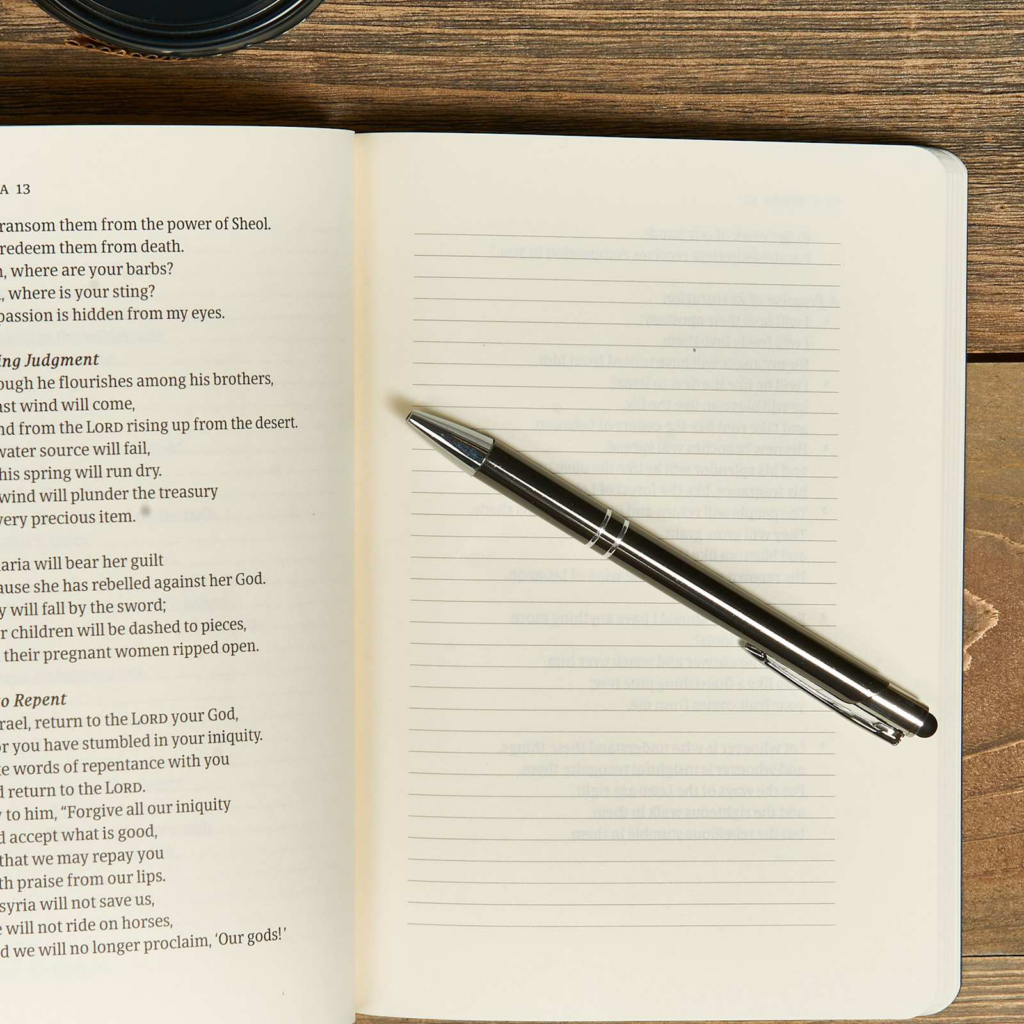 A 13
ransom them from the power of Sheol.
redeem them from death.
, where are your barbs?
, where is your sting?
passion is hidden from my eyes.
ing Judgment
ough he flourishes among his brothers,
ast wind will come,
nd from the LORD rising up from the desert.
water source will fail,
his spring will run dry.
wind will plunder the treasury
very precious item.
aria will bear her guilt
ause she has rebelled against her God.
y will fall by the sword;
r children will be dashed to pieces,
their pregnant women ripped open.
o Repent
rael, return to the LORD your God,
or you have stumbled in your iniquity.
e words of repentance with you
d return to the LORD.
y to him, “Forgive all our iniquity
d accept what is good,
that we may repay you
th praise from our lips.
syria will not save us,
e will not ride on horses,
d we will no longer proclaim, ‘Our gods!’